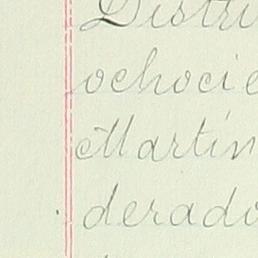 Distri
ochocie
Martín
derado